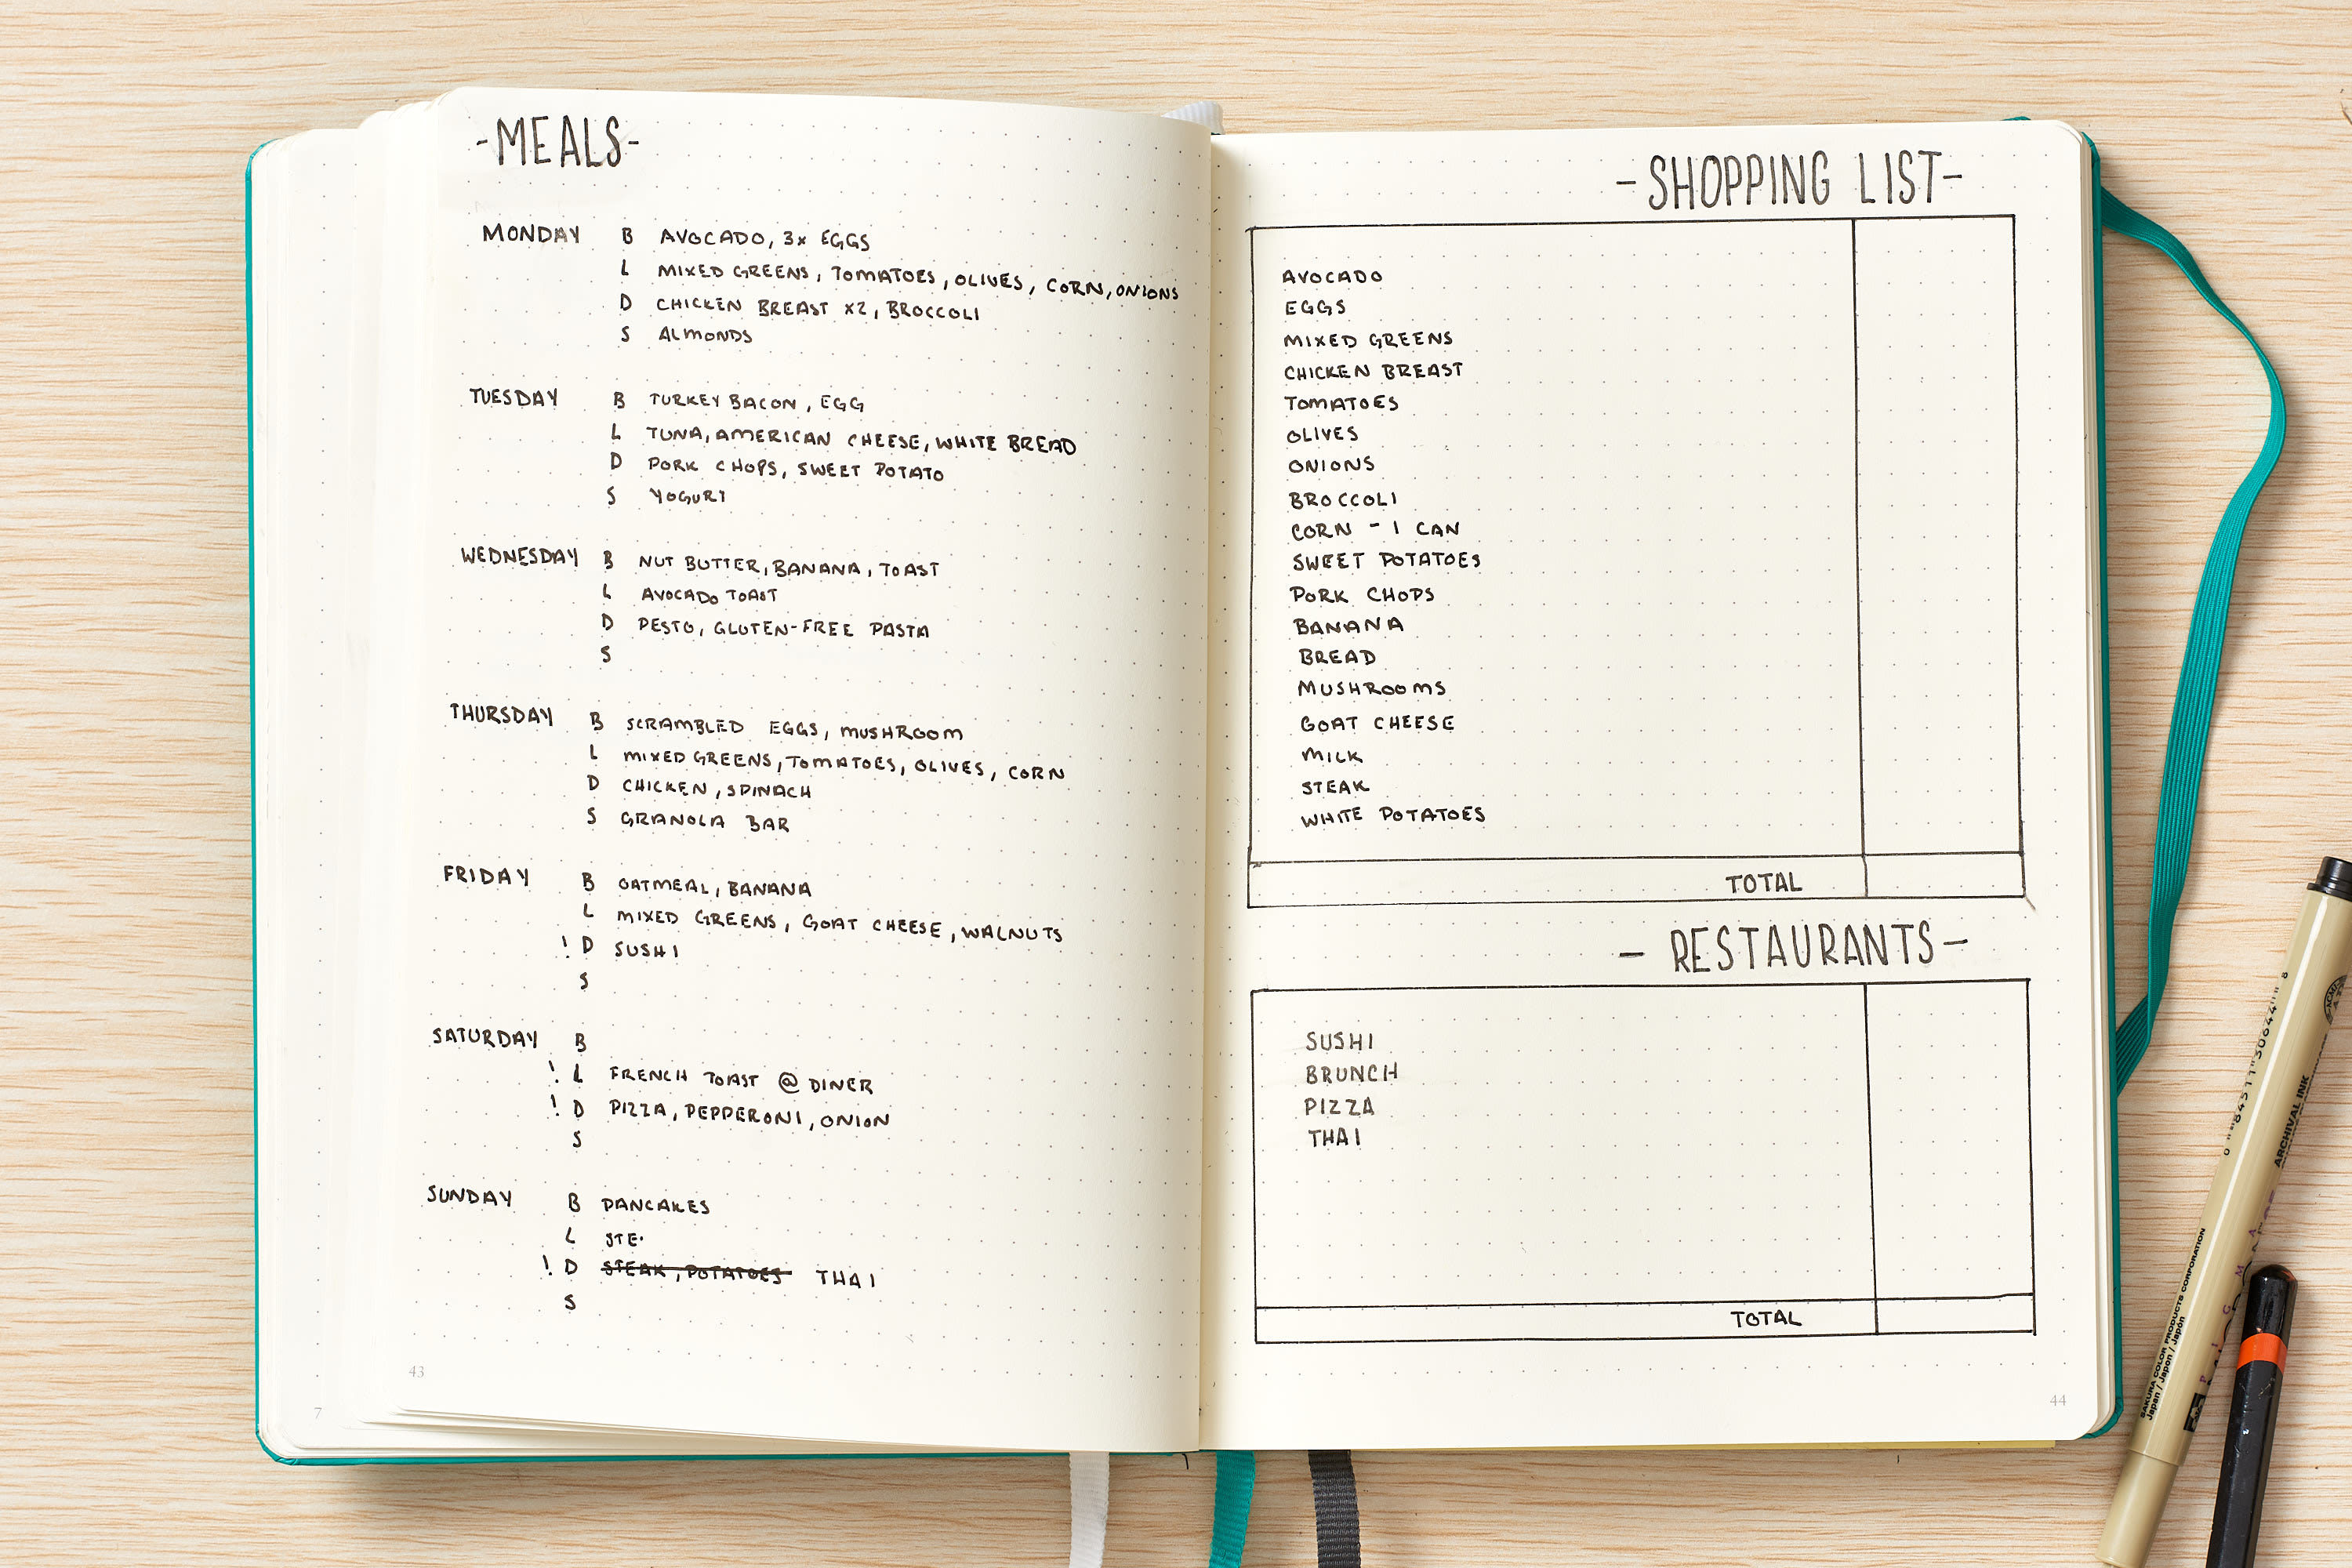 -MEALS-
MONDAY B AVOCADO, 3x EGGS
L MIXED GREENS, TOMATOES, OLIVES, CORN, ONIONS
D CHICKEN BREAST X2, BROCCOLI
S ALMONDS
TUESDAY B TURKEY BACON, EGG
L TUNA, AMERICAN CHEESE, WHITE BREAD
D PORK CHOPS, SWEET POTATO
S YOGURT
WEDNESDAY B NUT BUTTER, BANANA, TOAST
L AVOCADO TOAST
D PESTO, GLUTEN-FREE PASTA
S
THURSDAY B SCRAMBLED EGGS, MUSHROOM
L MIXED GREENS, TOMATOES, OLIVES, CORN
D CHICKEN, SPINACH
S GRANOLA BAR
FRIDAY B OATMEAL, BANANA
L MIXED GREENS, GOAT CHEESE, WALNUTS
! D SUSHI
S
SATURDAY B
! L FRENCH TOAST @ DINER
! D PIZZA, PEPPERONI, ONION
S
SUNDAY B PANCAKES
L STE
! D STEAK, POTATOES THAI
S
43
7
-SHOPPING LIST-
AVOCADO
EGGS
MIXED GREENS
CHICKEN BREAST
TOMATOES
OLIVES
ONIONS
BROCCOLI
CORN - 1 CAN
SWEET POTATOES
PORK CHOPS
BANANA
BREAD
MUSHROOMS
GOAT CHEESE
MILK
STEAK
WHITE POTATOES
TOTAL
- RESTAURANTS-
SUSHI
BRUNCH
PIZZA
THAI
TOTAL
44
ARCHIVAL INK
SAKURA COLOR PRODUCTS CORPORATION
Japan / Japon / Japón